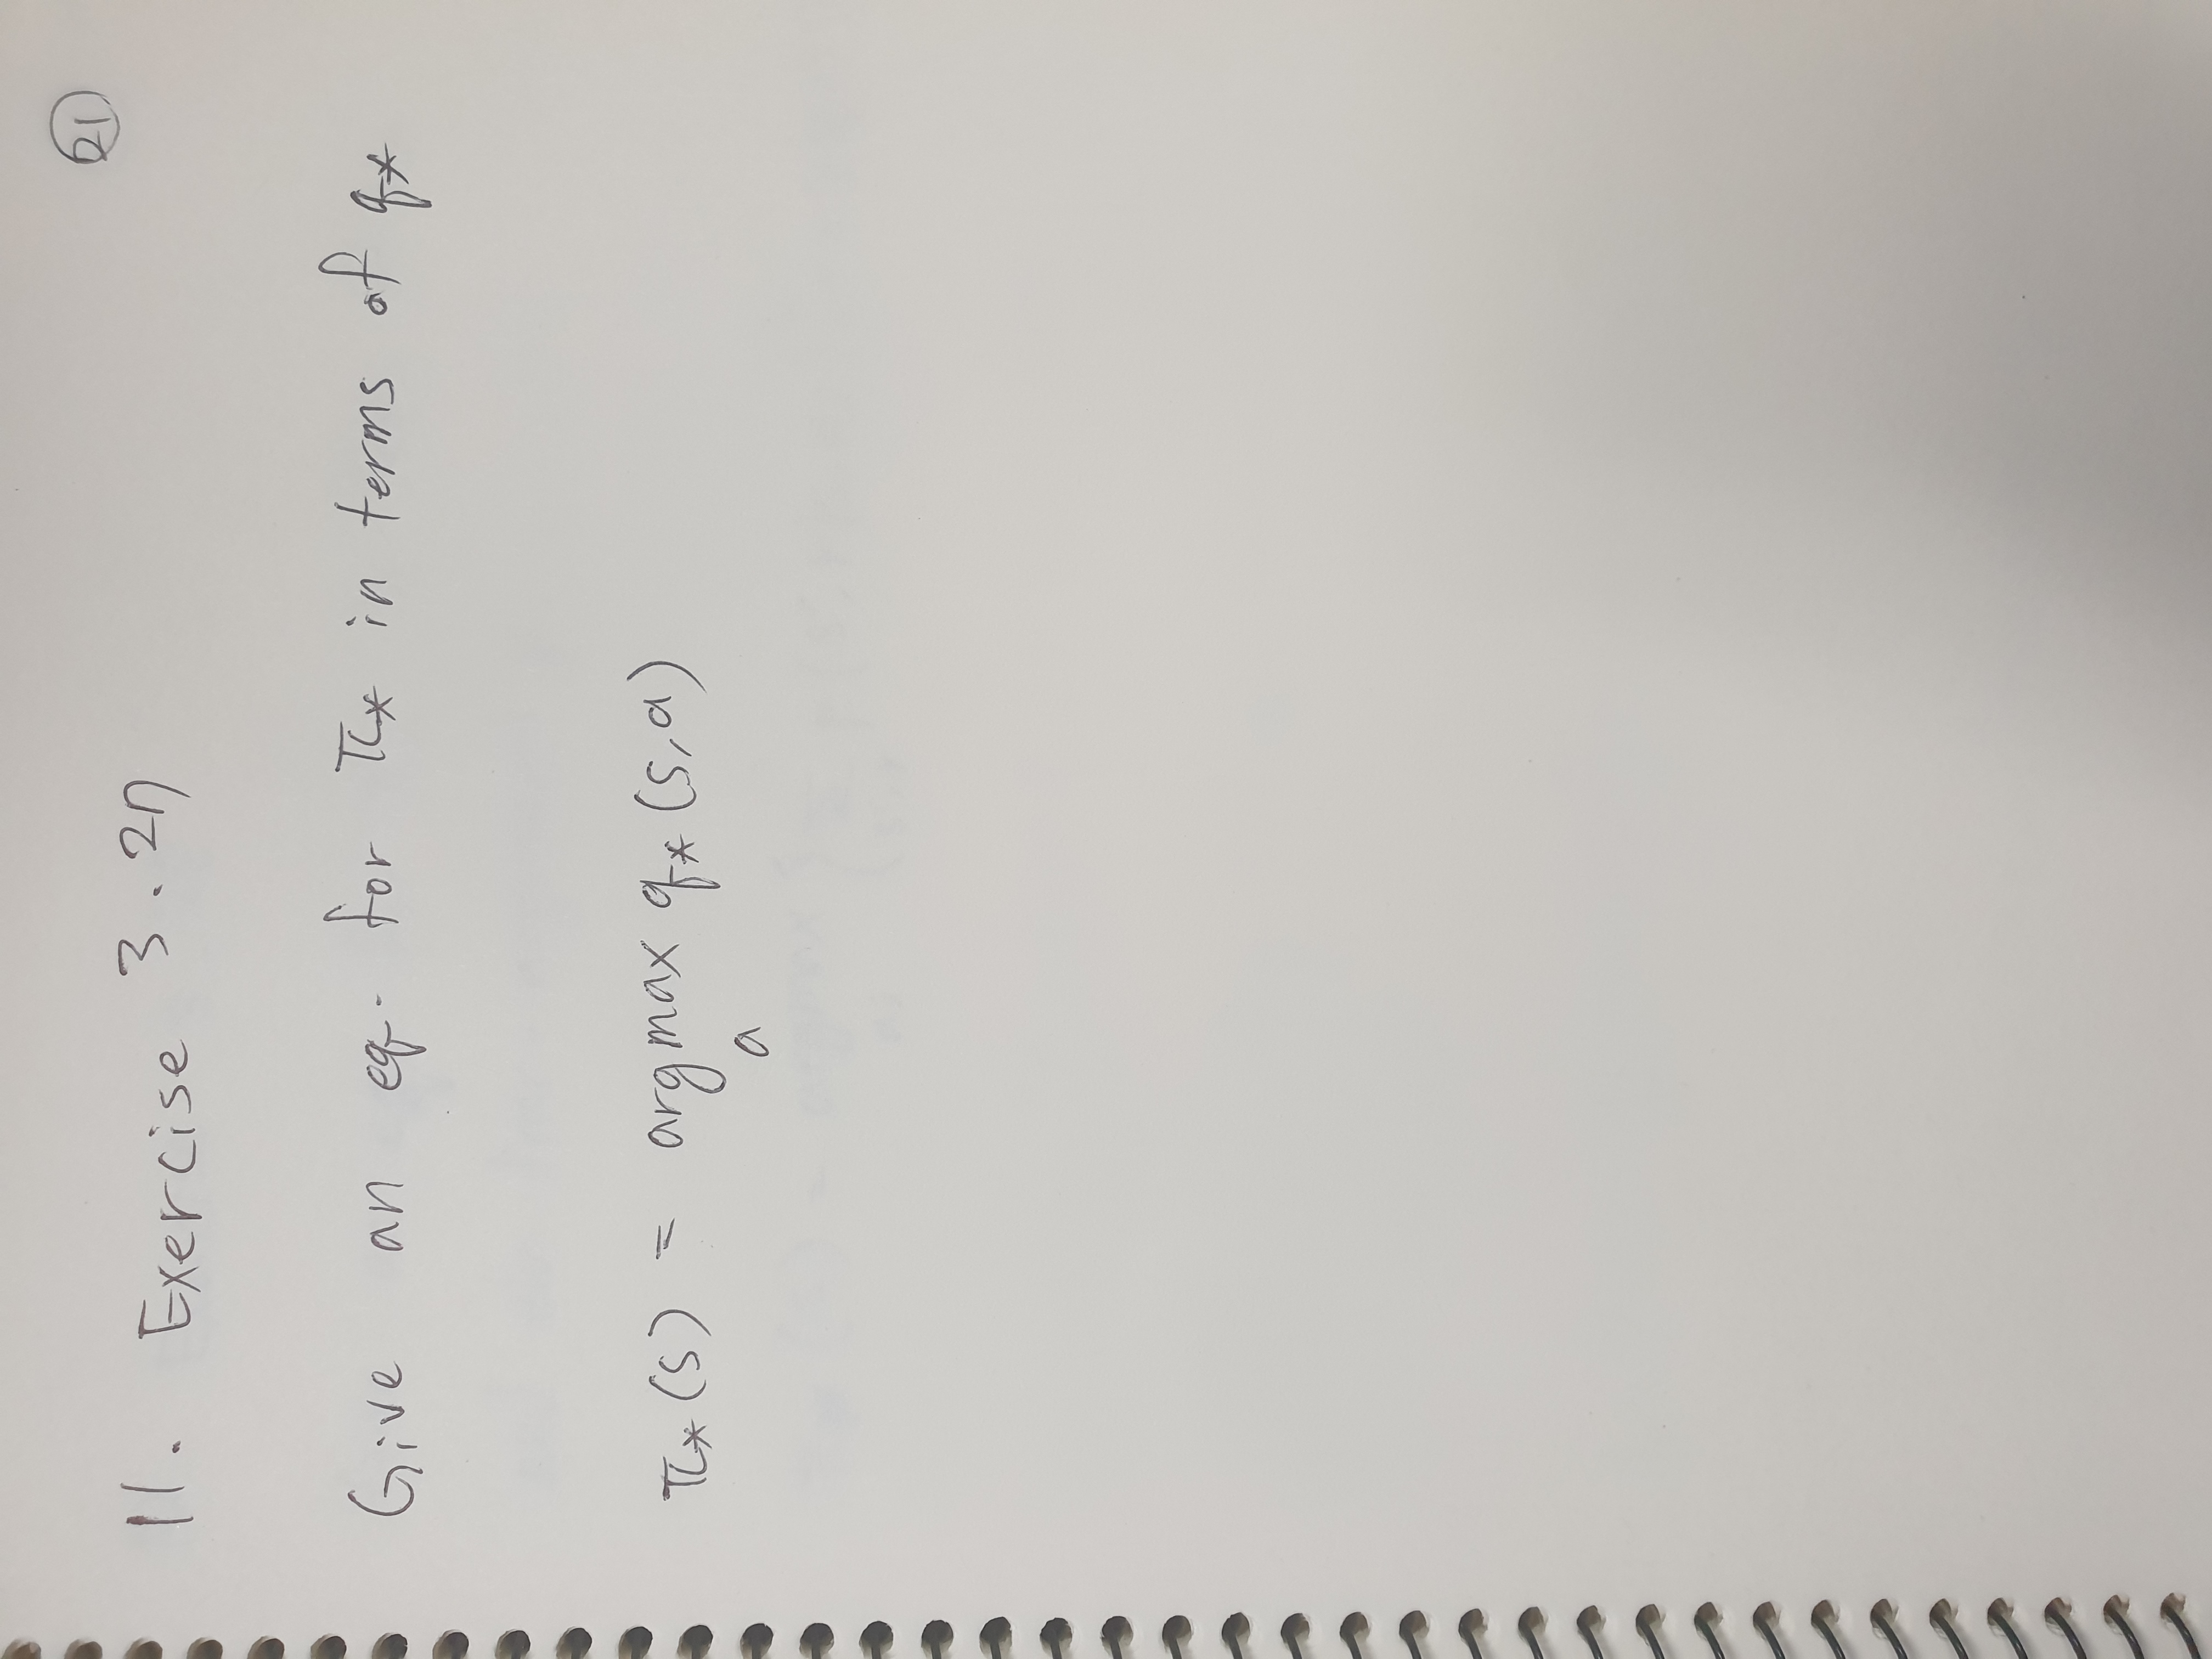 21
11. Exercise 3.27
Give an eq. for π* in terms of q*
π*(s) = argmax q*(s,a)
a